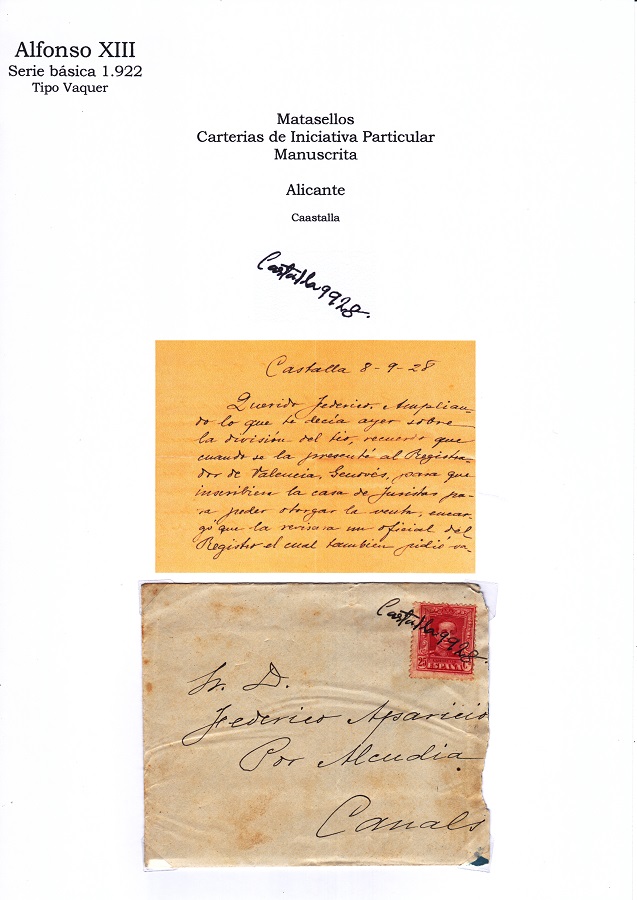 Alfonso XIII
Serie básica 1.922
Tipo Vaquer
Matasellos
Carterias de Iniciativa Particular
Manuscrita
Alicante
Caastalla
Castalla 9928.
Castalla 8-9-28
Querido Federico. Amplian-
do lo que te decía ayer sobre
la división del tio, recuerdo que
cuando se la presenté al Registra-
dor de Valencia, Genovés, para que
inscribiera la casa de Juristas pa-
ra poder otorgar la venta, encar-
gó que la revisara un oficial del
Registro el cual tambien pidió va-
Castalla 9928.
25 Cs
ESPAÑA
Sr. D.
Federico Aparicio
Por Alcudia
Canals